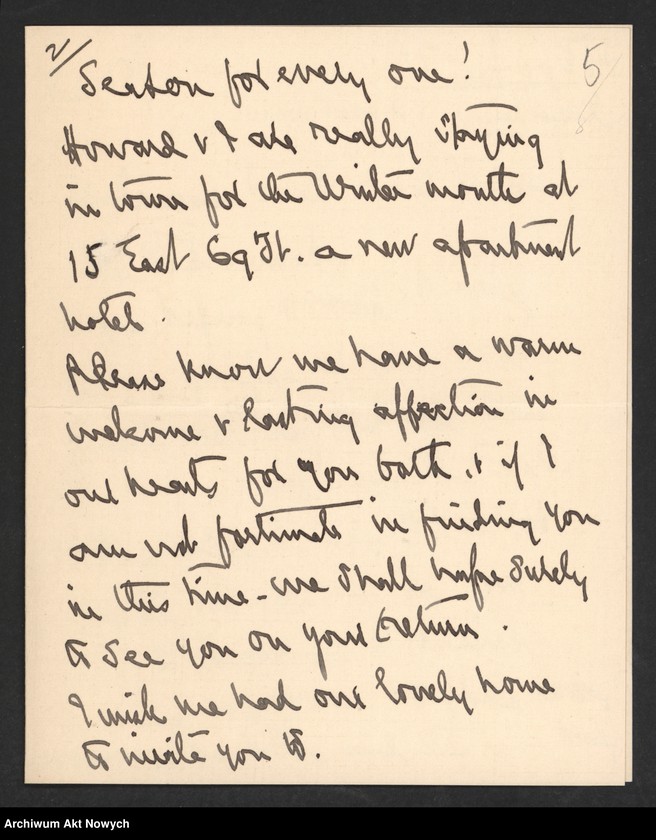 2/
5
Season for every one!
Howard & I are really staying
in town for the Winter month at
15 East 69 St. a new apartment
hotel.
Please know we have a warm
welcome & lasting affection in
our hearts for you both, & if I
am not fortunate in finding you
in this time - we shall hope surely
to see you on your return.
I wish we had our lovely home
to invite you to.
Archiwum Akt Nowych